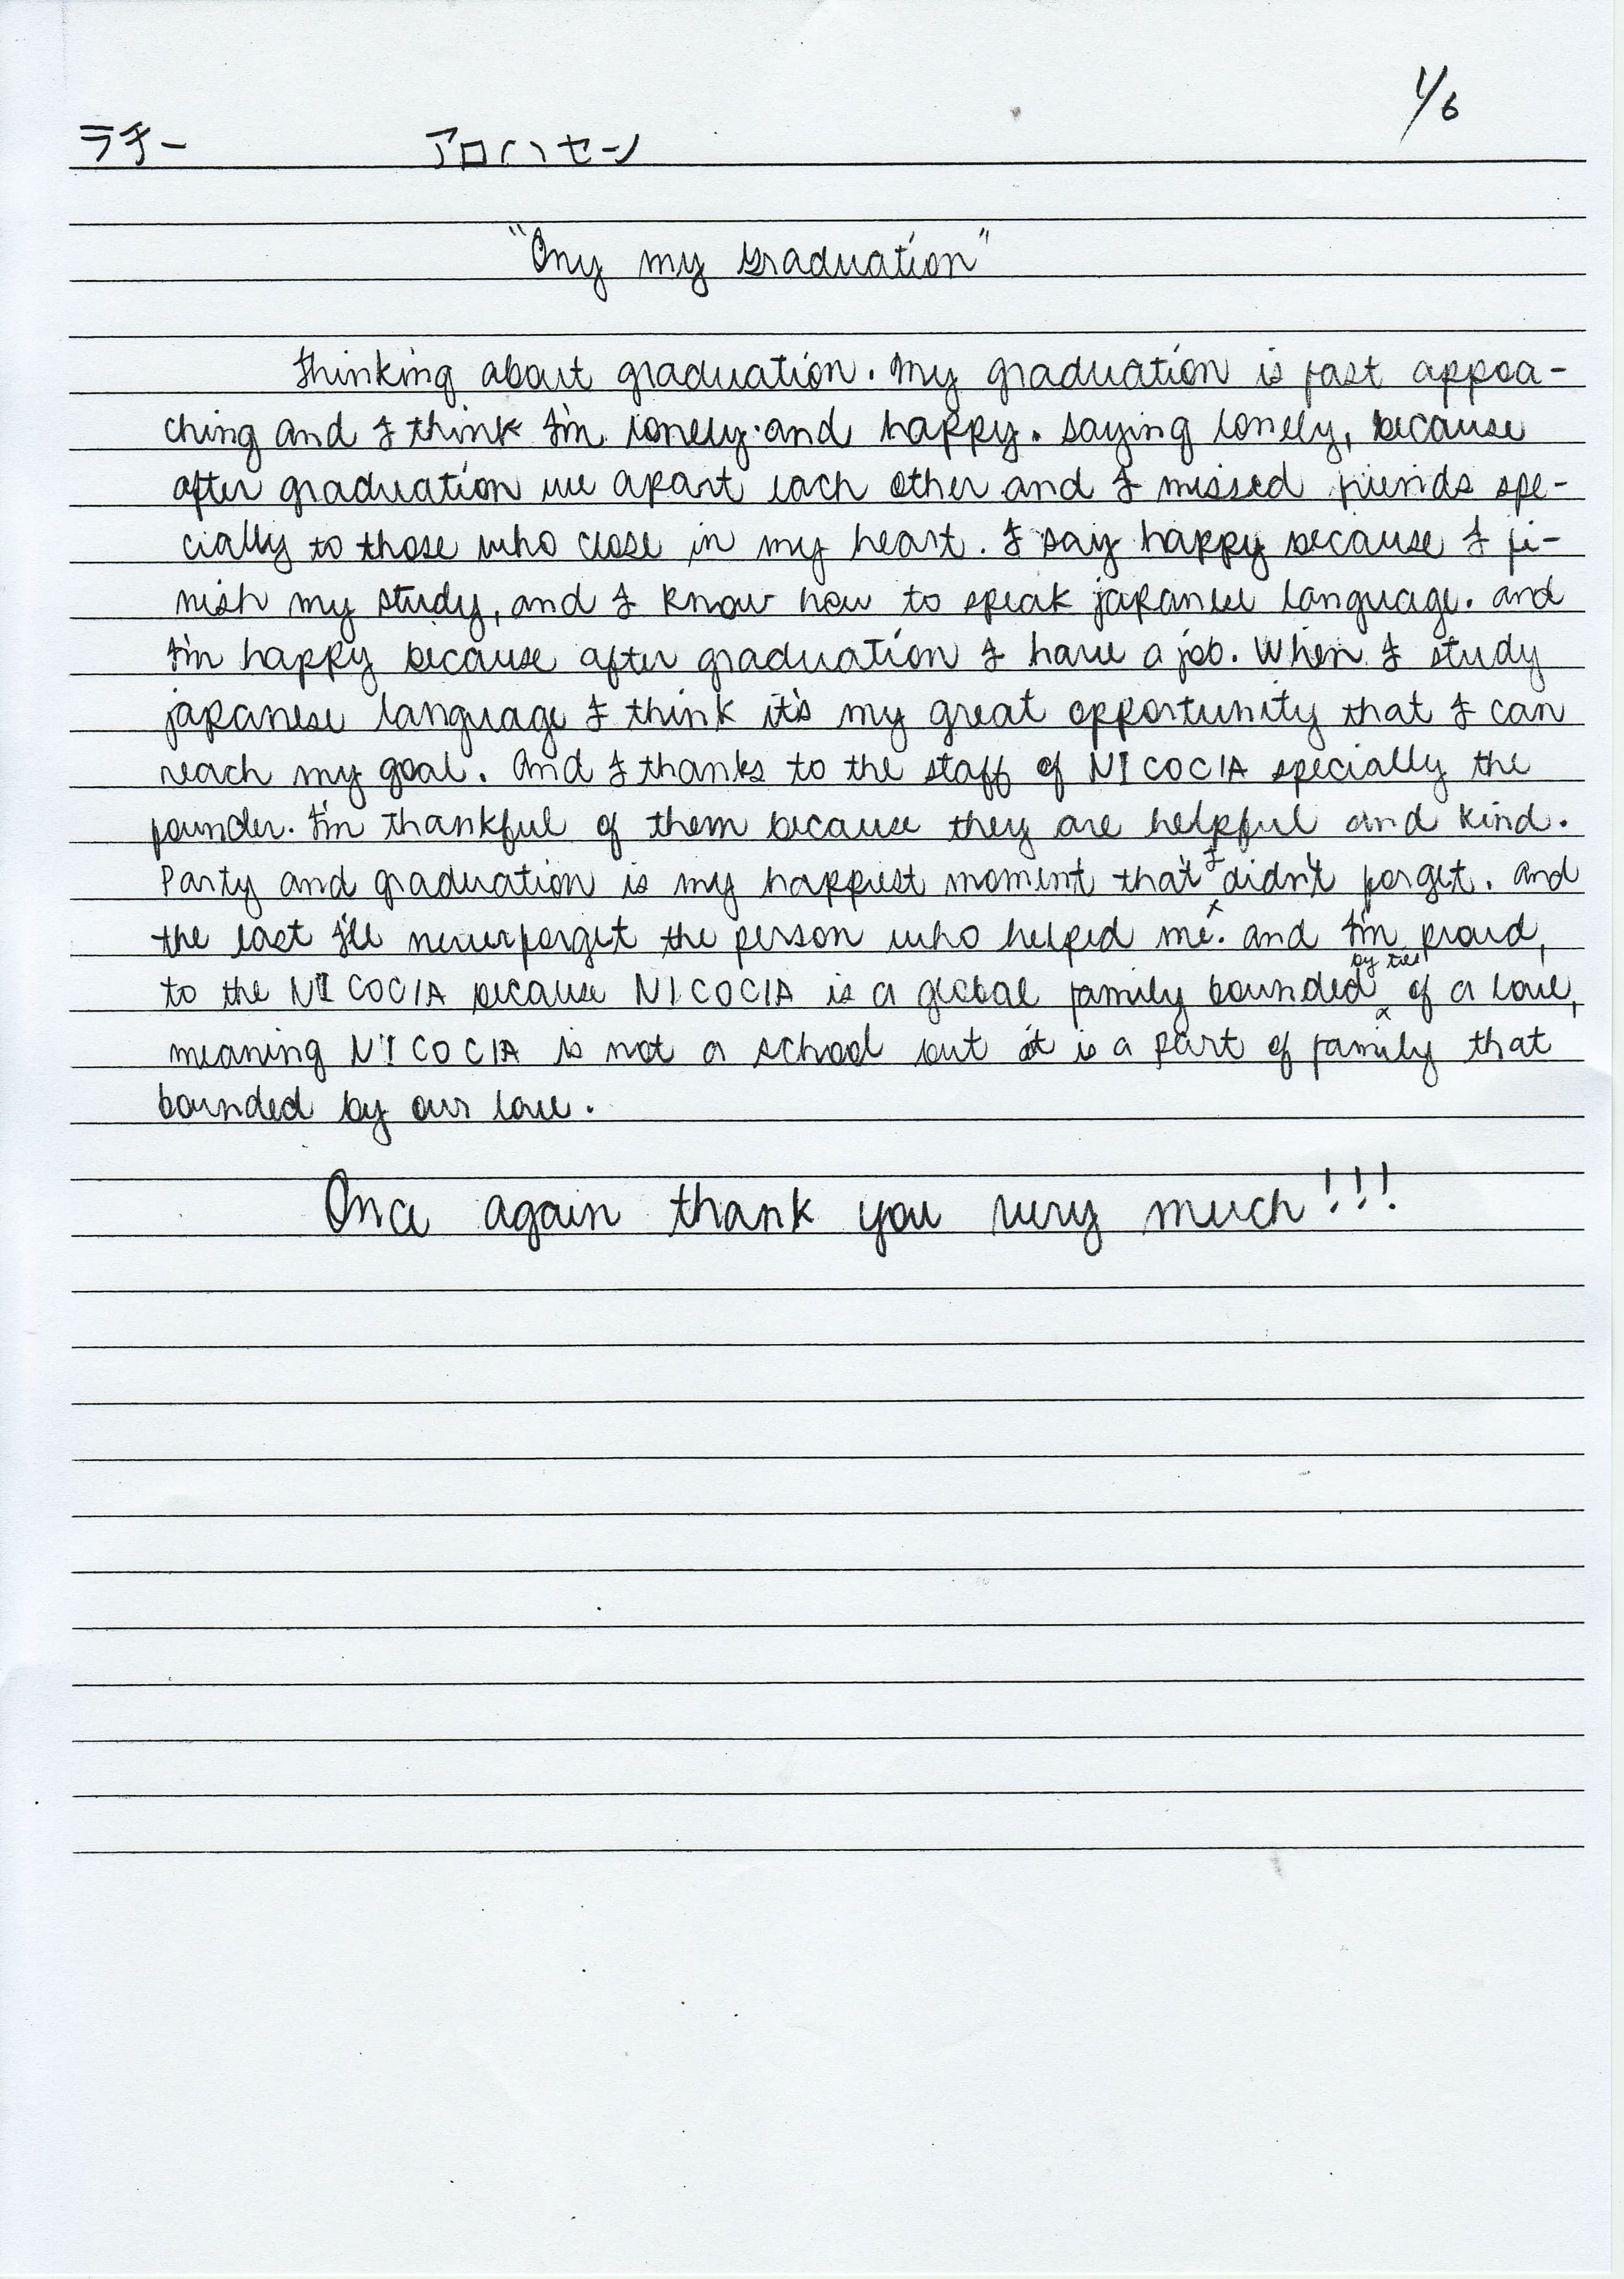 1/6
ラチー アロハセン
"Ony my Graduation"
Thinking about graduation. My graduation is fast appoa-
ching and I think I'm lonely and happy. Saying lonely, because
after graduation we apart each other and I missed friends spe-
cially to those who close in my heart. I say happy because I fi-
nish my study, and I know how to speak japanese language. and
I'm happy because after graduation I have a job. When I study
japanese language I think it's my great opportunity that I can
reach my goal. And I thanks to the staff of NICOCIA specially the
founder. I'm thankful of them because they are helpful and kind.
Party and graduation is my happiest moment that I didn't forget. And
the last I'll never forget the person who helped me. and I'm proud,
to the NICOCIA because NICOCIA is a global family bounded by ties of a love,
meaning NICOCIA is not a school but it is a part of family that
bounded by our love.
Once again thank you very much!!!